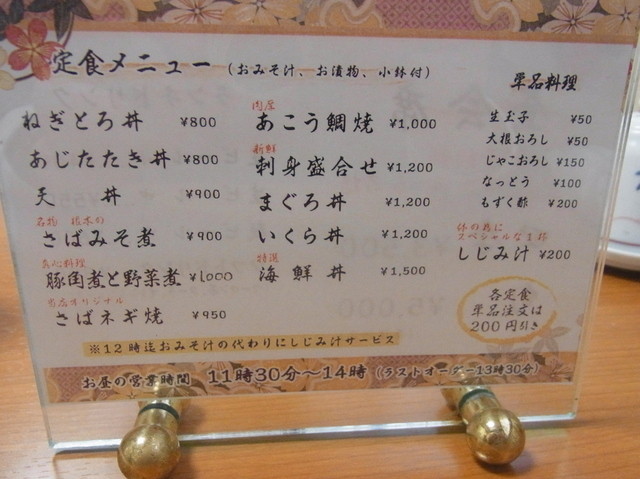 定食メニュー (おみそ汁、お漬物、小鉢付)
ねぎとろ丼 ¥800
あじたたき丼 ¥800
天 丼 ¥900
名物 根本の
さばみそ煮 ¥900
真心料理
豚角煮と野菜煮 ¥1,000
当店オリジナル
さばネギ焼 ¥950
肉厚
あこう鯛焼 ¥1,000
新鮮
刺身盛合せ ¥1,200
まぐろ丼 ¥1,200
いくら丼 ¥1,200
特選
海鮮丼 ¥1,500
単品料理
生玉子 ¥50
大根おろし ¥50
じゃこおろし ¥150
なっとう ¥100
もずく酢 ¥200
体の為に
スペシャルな1杯
しじみ汁 ¥200
各定食
単品注文は
200円引き
※12時迄おみそ汁の代わりにしじみ汁サービス
お昼の営業時間 11時30分〜14時 (ラストオーダー13時30分)